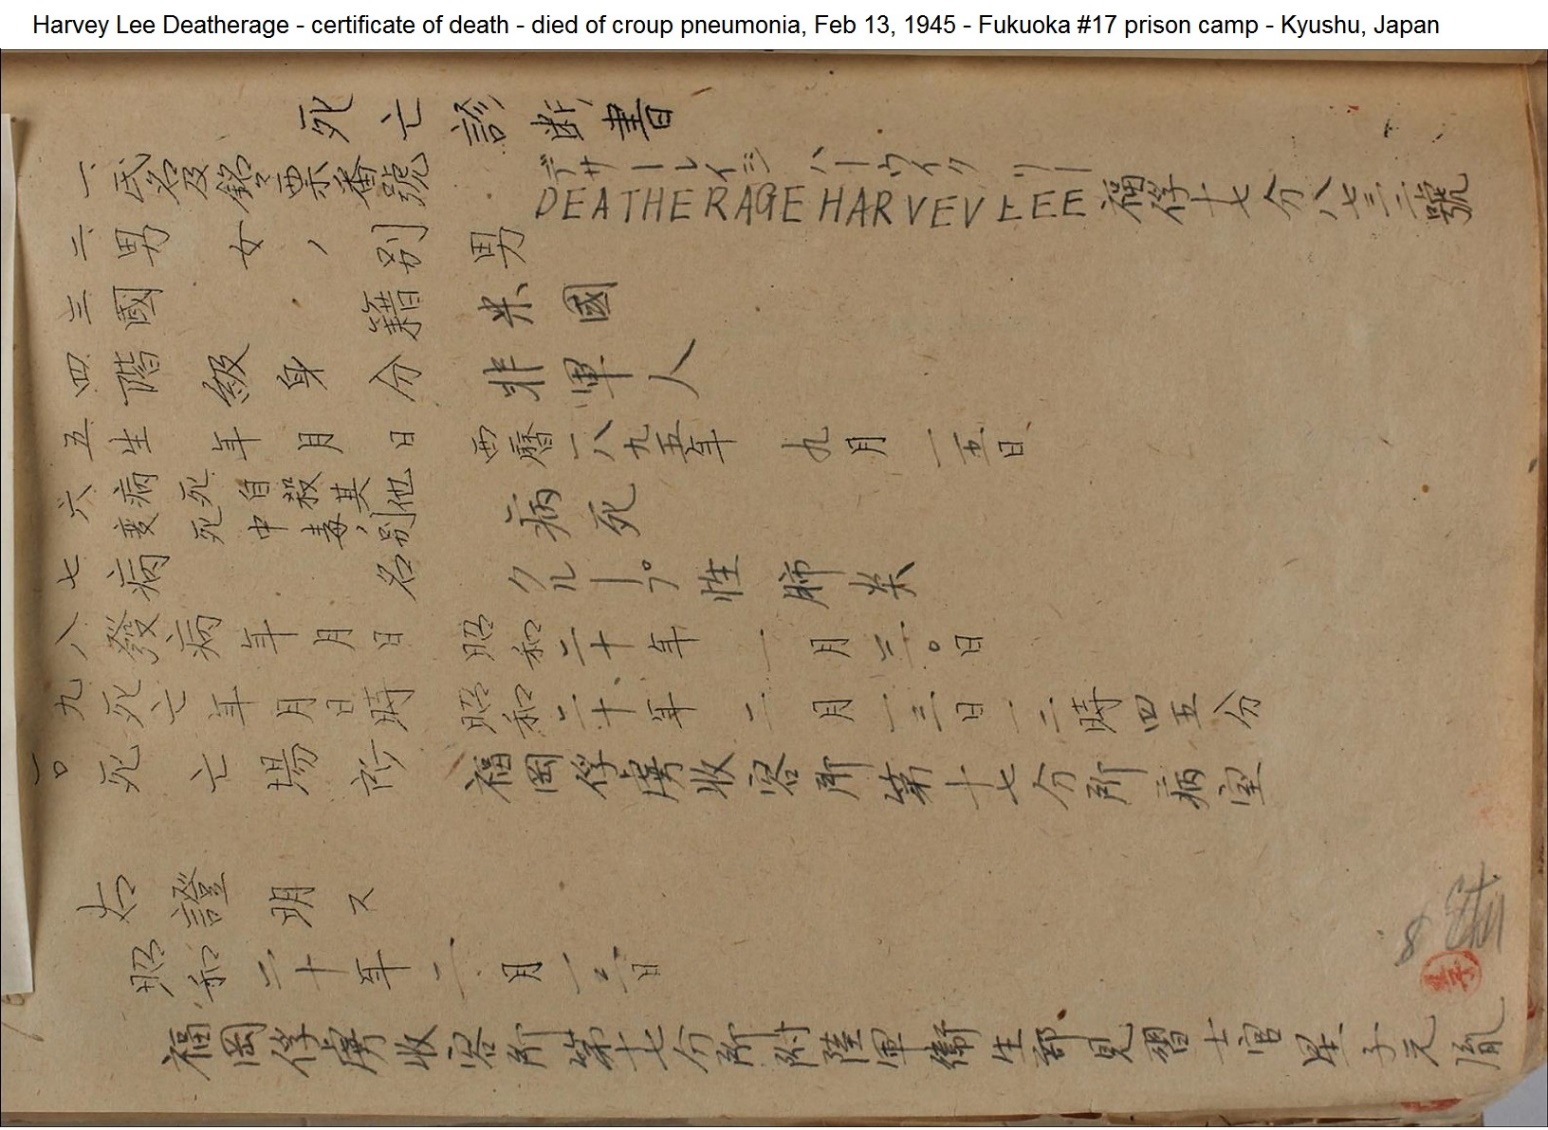 Harvey Lee Deatherage - certificate of death - died of croup pneumonia, Feb 13, 1945 - Fukuoka #17 prison camp - Kyushu, Japan
死亡診断書
デサーレイジ ハーウイク リー
一、氏名及銘票番號 DEATHERAGE HARVEV LEE 福俘十七分八七三二號
二 男女ノ別 男
三 國籍 米國
四 階級身分 非軍人
五 生年月日 西暦一八九五年九月一五日
六 病死 自殺 其他
変死 中毒ノ別 病死
七 病名 クループ性肺炎
八 發病年月日 昭和二十年一月三〇日
九 死亡年月日時 昭和二十年二月一三日一二時四五分
一〇 死亡場所 福岡俘虜收容所第十七分所病室
右證明ス
昭和二十年二月一三日
福岡俘虜收容所第十七分所附陸軍衛生部見習士官 星子元胤